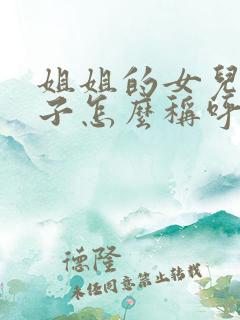 姐姐的女兒
子怎麼稱呼
德隆
未经同意禁止转载